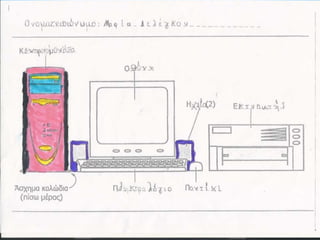 Ονοματεπώνυμο: Μαρία Δελέγκου
Κεντρική μονάδα
Οθόνη
Ηχεία(2)
Εκτυπωτής
Άσχημα καλώδια
(πίσω μέρος)
Πληκτρολόγιο
Ποντίκι